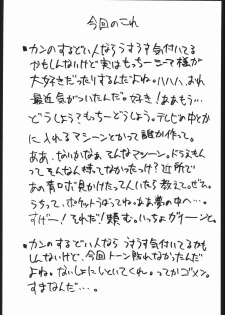 今回のこれ
・カンのするどい人ならうすうす気付いてる
かもしんないけど実はもっちーシマ様が
大好きだったりするんだよね。ハハハ、おれ
最近気がついたんだ。好き！ああもう…
どうしよう？もっちーどうしよう。テレビの中とか
に入れるマシーンとかって誰か作って。
ああ、ないかなぁ そんなマシーン。ドラえもん
ってそんなん持ってなかったっけ？近所で
あの青ロボ見かけたって人いたら教えてぜよ。
うちって、ポケットうばってね。ああ夢の中へ…。
すげー！それだ！頼む。いっちょガツーンと。
・カンのするどい人なら うすうす気付いてるかも
しんないけど、今回トーン貼れなかったんだ
よね。ないしょにしといてくれ。ってかゴメン。
すまなんだ…。